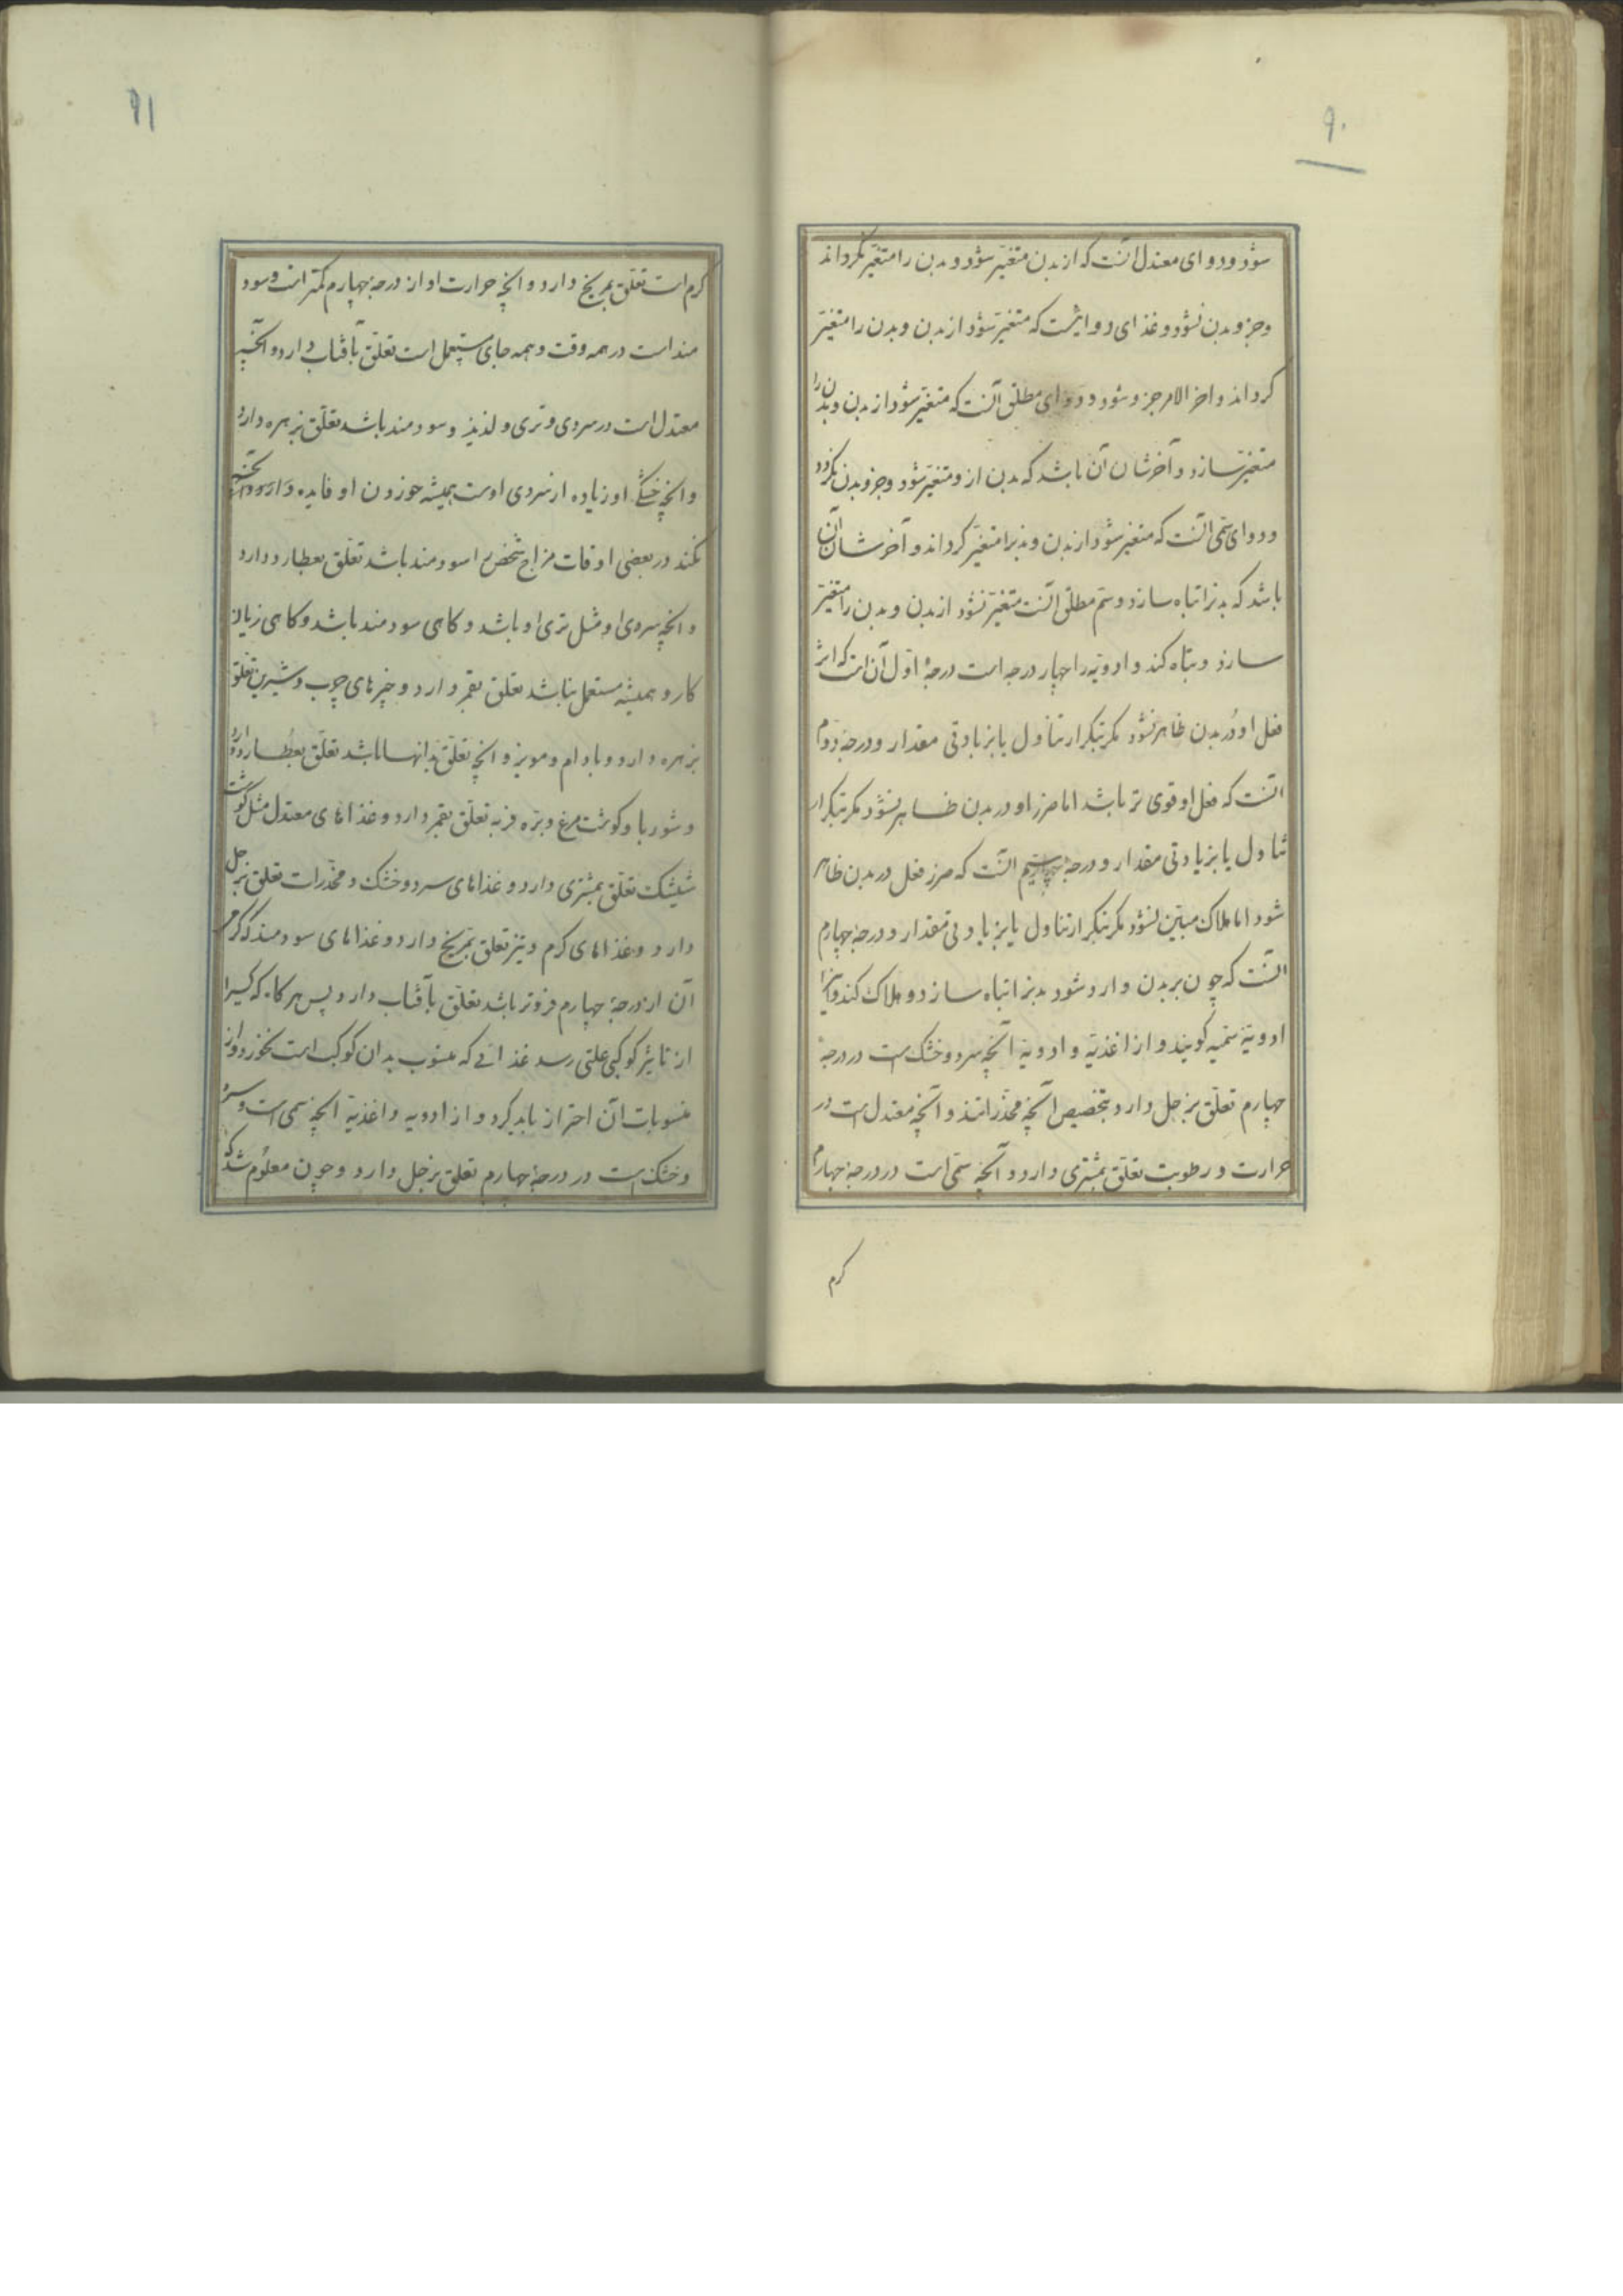 ۹۰
شود و دوای معتدل آنست که از بدن متغیّر شود و بدن را متغیّر نکرداند
و جزو بدن نشود و غذای دوائیست که متغیّر شود از بدن و بدن را متغیّر
کرداند و اخر الامر جزو شود و دوای مطلق آنست که متغیّر شود از بدن و بدن را
متغیّر سازد و آخر شان آن باشد که بدن ازو متغیّر شود و جزو بدن نکردد
و دوای سمّی آنست که متغیر شود از بدن و بدنرا متغیّر کرداند و آخر شان آن
باشد که بدنرا تباه سازد و سمّ مطلق آنست متغیّر نشود از بدن و بدن را متغیّر
سازد و تباه کند و ادویه را چهار درجه است درجۀ اوّل آن است که اثر
فعل او در بدن ظاهر نشود مکر بتکرار تناول یا بزیادتی مقدار و درجۀ دوم
آنست که فعل او قوی تر باشد اما ضرر او در بدن ظاهر نشود مکر بتکرار
تناول یا بزیادتی مقدار و درجۀ سیم آنست که ضرر فعل در بدن ظاهر
شود اما هلاک مبیّن نشود مکر بتکرار تناول یا بزیادتی مقدار و درجۀ چهارم
آنست که چون بر بدن وارد شود بدنرا تباه سازد و هلاک کند و آنرا
ادویۀ سمّیه کویند و از اغذیّه و ادویۀ آنچه سرد و خشک است در درجۀ
چهارم تعلّق بزحل دارد بتخصیص آنچه مخدّراتند و آنچه معتدل است در
حرارت و رطوبت تعلّق بمشتری دارد و آنچه سمّی است در درجۀ چهارم
کرم
۹۱
کرم است تعلّق بمریخ دارد و انچه حرارت او از درجۀ چهارم کمتر است و سود
مند است در همه وقت و همه جای مستعمل است تعلّق بآفتاب دارد و آنچه
معتدل است در سردی و تری و لذیذ و سودمند باشد تعلّق بزهره دارد
و انچه خشکی او زیاده از سردی اوست همیشه خوردن او فایده
نکند در بعضی اوقات مزاج شخص را سودمند باشد تعلّق بعطارد دارد
و انچه سردی او مثل تری او باشد و کاهی سودمند باشد و کاهی زیان
کار و همیشه مستعمل نباشد تعلّق بقمر دارد و چیزهای چرب و شیرین تعلّق
بزهره دارد و بادام و مویز و انچه تعلّق بدانها باشد تعلّق بعطارد دارد
و شوربا و کوشت مرغ و برّه فربه تعلّق بقمر دارد و غذاهای معتدل مثل کوشت
شیشک تعلّق بمشتری دارد و غذاهای سرد و خشک و مخدّرات تعلق بزحل
دارد و غذاهای کرم و تیز تعلق بمریخ دارد و غذاهای سودمند که کرمی
آن از درجۀ چهارم فروتر باشد تعلّق بآفتاب دارد پس هر کاه که کسیرا
از تاثیر کوکبی علتی رسد غذائی که منسوب بدان کوکب است نخورد و از
منسوبات آن احتراز باید کرد و از ادویه و اغذیۀ انچه سمی است و سرد
و خشک است در درجۀ چهارم تعلق بزحل دارد و چون معلوم شد که